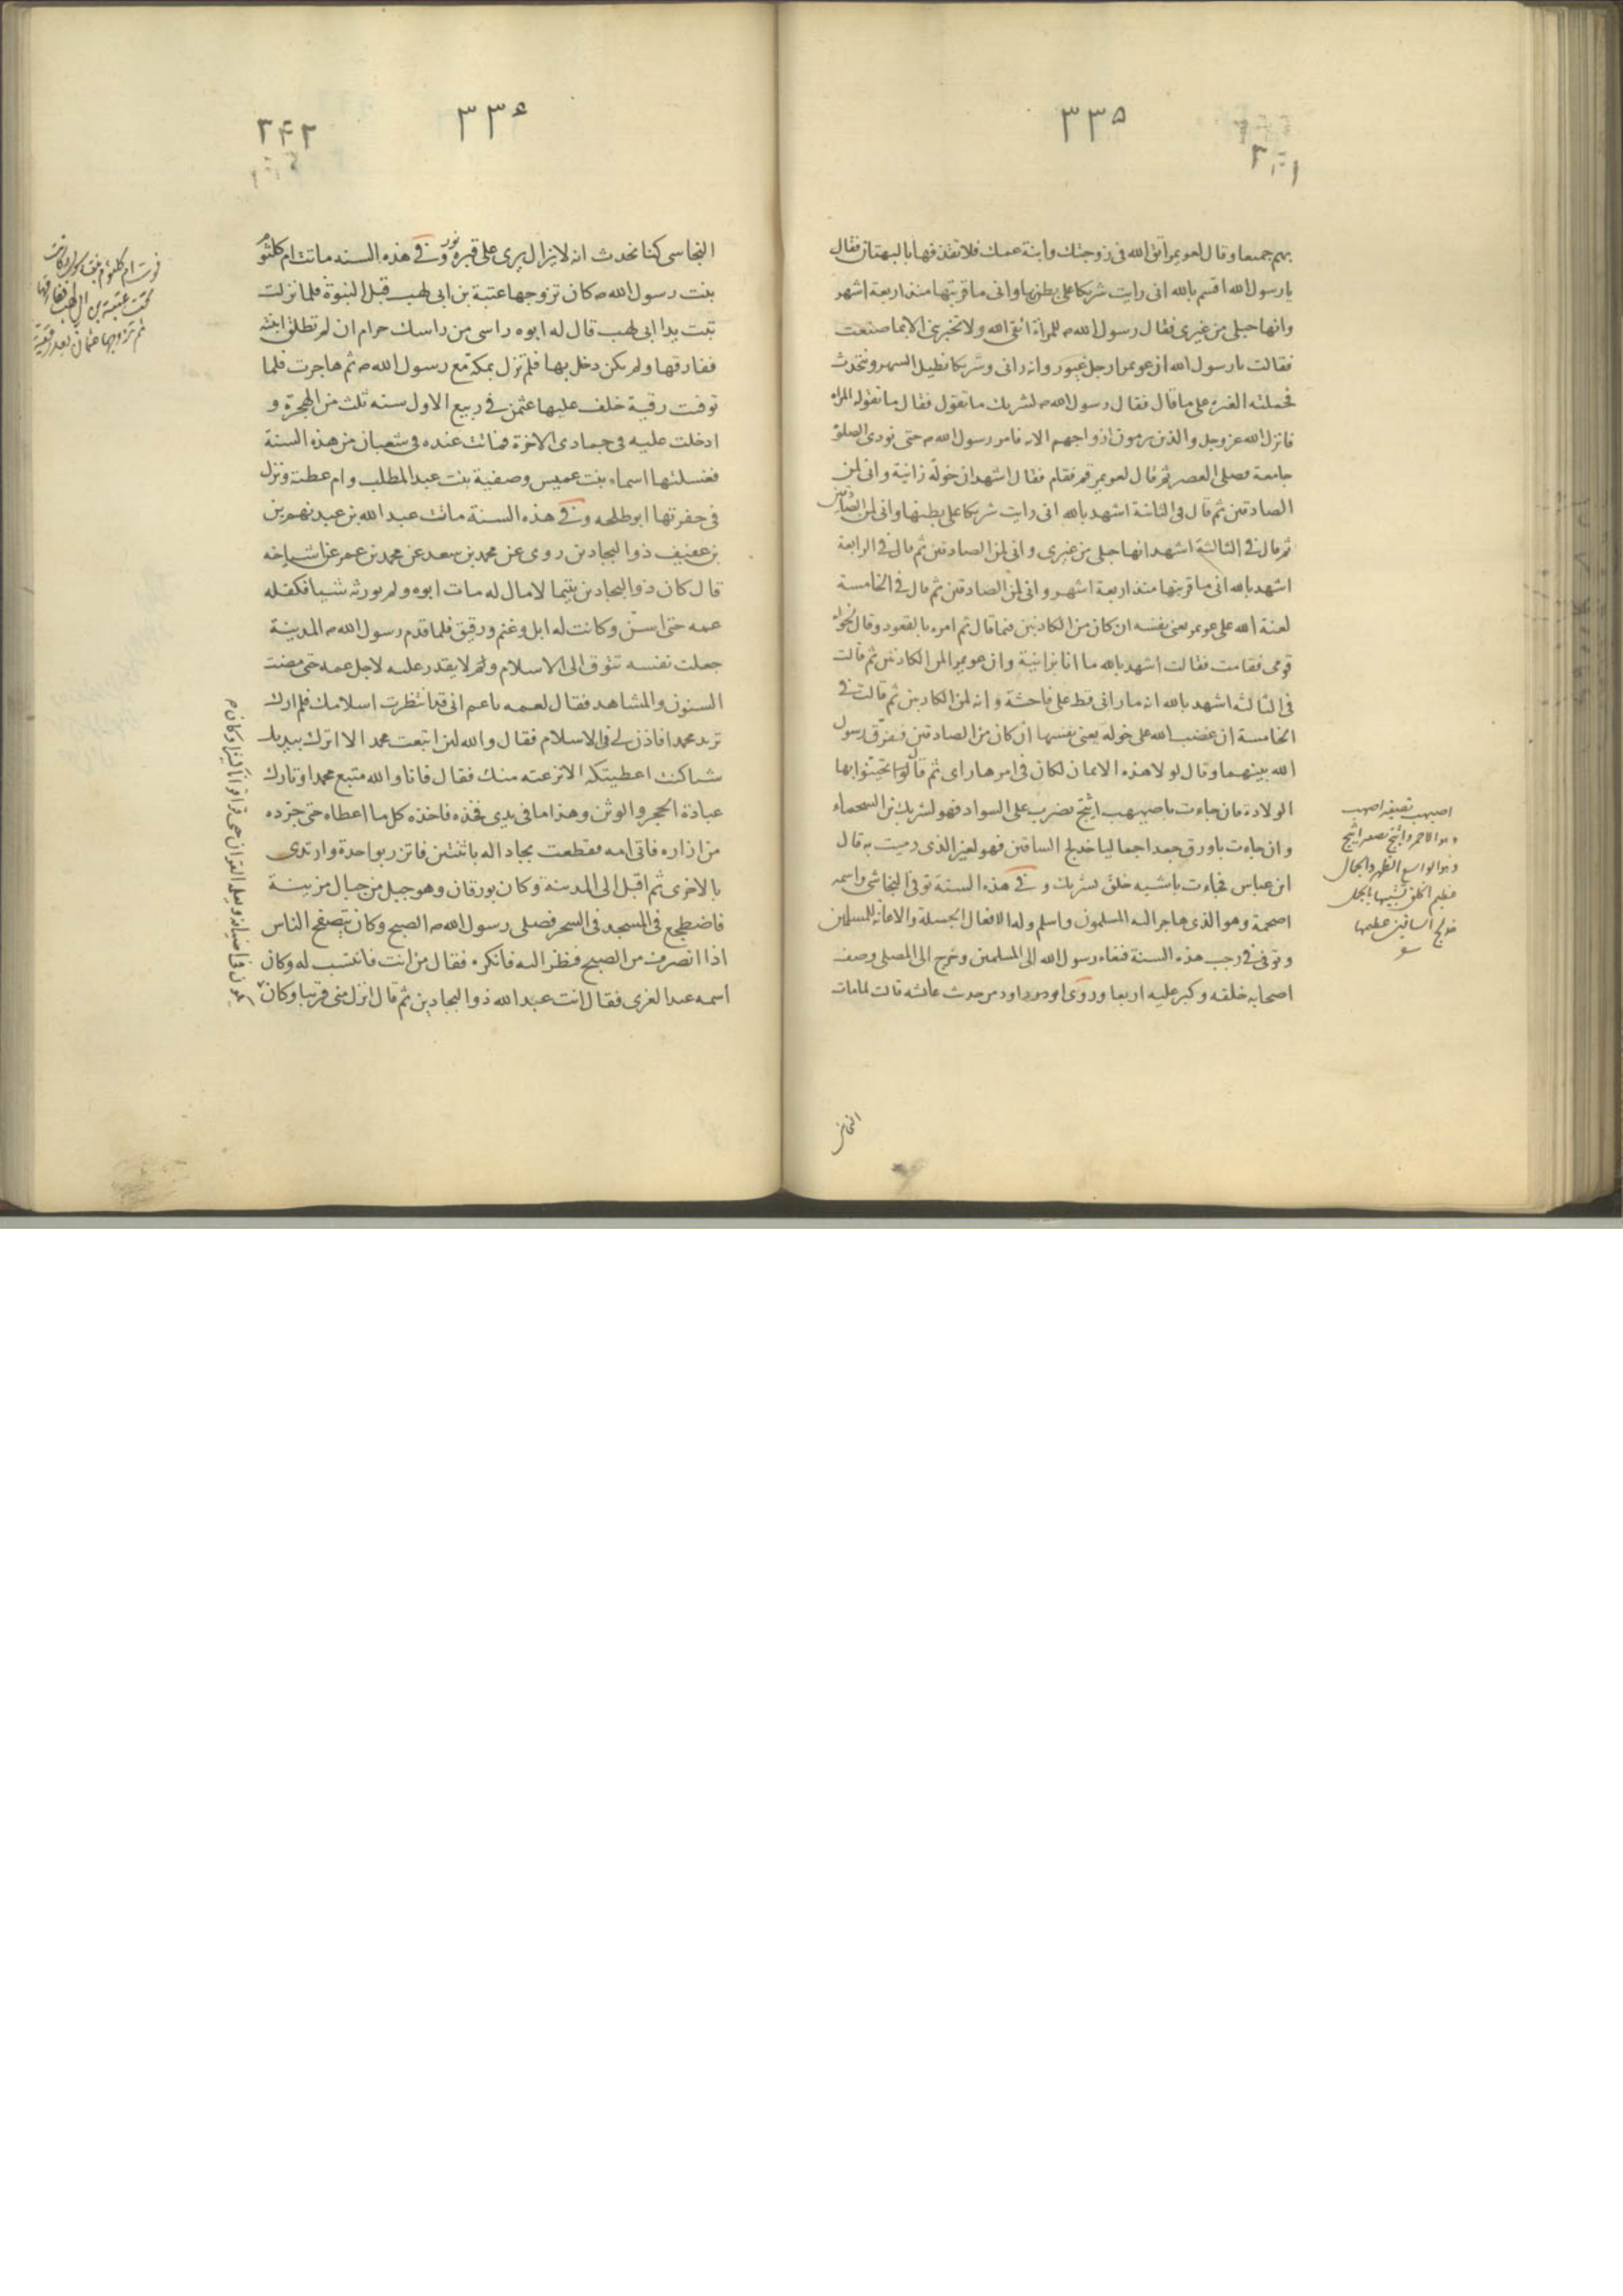 ٣٣٥
بهم جميعا وقال لعويمر اتق الله فى زوجتك وابنة عمك فلا تقذفها بالبهتان فقال
يا رسول الله اقسم بالله انى رايت شريكا على بطنها وانى ما قربتها منذ اربعة اشهر
وانها حبلى من غيرى فقال رسول الله ص للمراة اتقى الله ولا تخبرى الا بما صنعت
فقالت يا رسول الله ان عويمرا رجل غيور وانه رانى وشريكا نطيل السهر ونتحدث
فحملته الغيرة على ما قال فقال رسول الله ص لشريك ما تقول فقال ما تقوله المراة
فانزل الله عز وجل والذين يرمون ازواجهم الاية فامر رسول الله ص حتى نودى الصلوة
جامعة فصلى العصر ثم قال لعويمر قم فقام فقال اشهد ان خولة زانية وانى لمن
الصادقين ثم قال فى الثانية اشهد بالله انى رايت شريكا على بطنها وانى لمن الصادقين
ثم قال فى الثالثة اشهد انها حبلى من غيرى وانى لمن الصادقين ثم قال فى الرابعة
اشهد بالله انى ما قربتها منذ اربعة اشهر وانى لمن الصادقين ثم قال فى الخامسة
لعنة الله على عويمر يعنى نفسه ان كان من الكاذبين فيما قال ثم امره بالقعود وقال لخولة
قومى فقامت فقالت اشهد بالله ما انا بزانية وان عويمرا لمن الكاذبين ثم قالت
فى الثالثة اشهد بالله انه ما رانى قط على فاحشة وانه لمن الكاذبين ثم قالت فى
الخامسة ان غضب الله على خولة يعنى نفسها ان كان من الصادقين ففرق رسول
الله بينهما وقال لولا هذه الايمان لكان فى امرها راى ثم قال تحينوا بها
الولادة فان جاءت باصيهب اثيبج يضرب على السواد فهو لشريك بن السحماء
وان جاءت باورق جعدا جماليا خدلج الساقين فهو لغير الذى رميت به قال
ابن عباس فجاءت باشبه خلق بشريك وفى هذه السنة توفى النجاشى واسمه
اصحمة وهو الذى هاجر اليه المسلمون واسلم وله الافعال الجميلة والاعانة للمسلمين
وتوفى فى رجب هذه السنة فنعاه رسول الله الى المسلمين وخرج الى المصلى وصف
اصحابه خلفه وكبر عليه اربعا وروى ابو داود من حديث عائشة قالت لما مات
اصيهب تصغير اصهب
وهو الاحمر واثيبج تصغير اثبج
وهو الواسع الظهر والجمالى
عظيم الخلق تشبيها بالجمل
خدلج الساقين عظيمها
النجاشى
٣٣۶
٣۴٢
النجاشى كنا نحدث انه لا يزال يرى على قبره نور وفى هذه السنه ماتت ام كلثوم
بنت رسول الله ص كان تزوجها عتبة بن ابى لهب قبل النبوة فلما نزلت
تبت يدا ابى لهب قال له ابوه راسى من راسك حرام ان لم تطلق ابنته
ففارقها ولم يكن دخل بها فلم تزل بمكة مع رسول الله ص ثم هاجرت فلما
توفت رقية خلف عليها عثمن فى ربيع الاول سنه ثلث من الهجرة و
ادخلت عليه فى جمادى الاخرة فماتت عنده فى شعبان من هذه السنة
فغسلتها اسماء بنت عميس وصفية بنت عبد المطلب وام عطية ونزل
فى حفرتها ابو طلحه وفى هذه السنة مات عبد الله بن عبد نهم بن
بن عفيف ذو البجادين روى عن محمد بن سعد عن محمد بن عمر عن اشياخه
قال كان ذو البجادين يتيما لا مال له مات ابوه ولم يورثه شيا فكفله
عمه حتى اسن وكانت له ابل وغنم ورقيق فلما قدم رسول الله ص المدينة
جعلت نفسه تتوق الى الاسلام ولم لا يقدر عليه لاجل عمه حتى مضت
السنون والمشاهد فقال لعمه يا عم انى قد انتظرت اسلامك فلم ارك
تريد محمدا فاذن لى فى الاسلام فقال والله لئن اتبعت محمدا لا اترك بيدك
شيا كنت اعطيتكه الا نزعته منك فقال فانا والله متبع محمدا وتارك
عبادة الحجر والوثن وهذا ما فى يدى فخذه فاخذه كل ما اعطاه حتى جرده
من ازاره فاتى امه فقطعت بجادا له باثنين فاتزر بواحدة وارتدى
بالاخرى ثم اقبل الى المدينة وكان بورقان وهو جبل من جبال مزينة
فاضطجع فى المسجد فى السحر فصلى رسول الله ص الصبح وكان يتصفح الناس
اذا انصرف من الصبح فنظر اليه فانكره فقال من انت فانتسب له وكان
اسمه عبد العزى فقال انت عبد الله ذو البجادين ثم قال انزل منى قريبا وكان
فوت ام كلثوم بنت رسول وكانت
تحت عتبة بن ابى لهب ففارقها
ثم تزوجها عثمان بعد رقية
يكون فى اضيافه ويعلمه القران حتى قرا قرانا كثيرا وكان